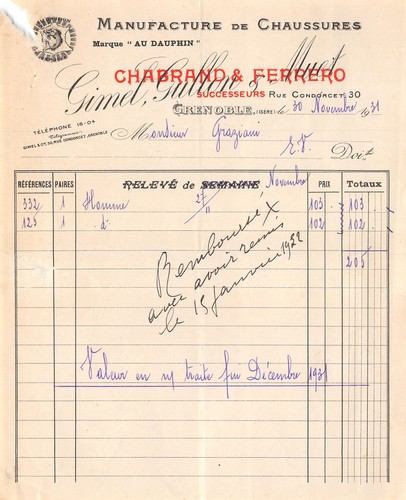 MANUFACTURE DE CHAUSSURES
Marque "AU DAUPHIN"
CHABRAND & FERRERO
Gimel, Gallon & Muet
SUCCESSEURS RUE CONDORCET, 30
GRENOBLE, (ISÈRE) le 30 Novembre 1931
TÉLÉPHONE 16-04
Télégrammes:
GIMEL & Cie, 30, RUE CONDORCET, GRENOBLE
Monsieur Graziani
E.V. Doit
RÉFÉRENCES PAIRES RELEVÉ de SEMAINE Novembre PRIX Totaux
332 1 Homme 27/11 103 103
125 1 d° 102 102
205
Remboursé
avec avoir remis
le 15 Janvier 1932
Valeur en n/ traite fin Décembre 1931